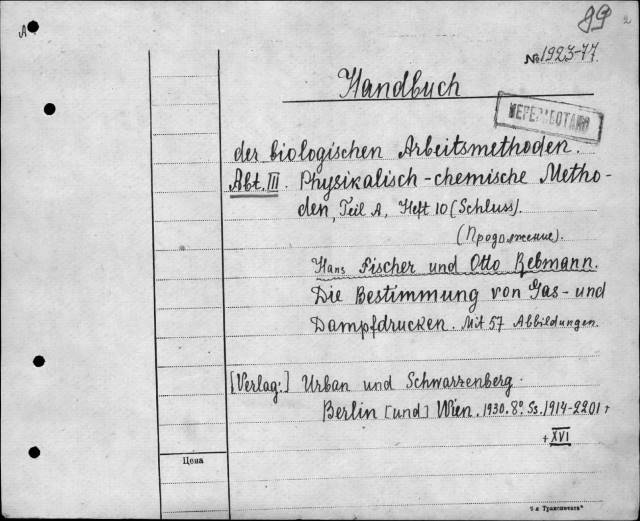 89
А
№1923-77.
Handbuch
ПЕРЕРАБОТАНО
der biologischen Arbeitsmethoden.
Abt. III. Physikalisch-chemische Metho-
den, Teil A, Heft 10 (Schluss).
(Продолжение).
Hans Fischer und Otto Rebmann.
Die Bestimmung von Gas- und
Dampfdrucken. Mit 57 Abbildungen.
[Verlag:] Urban und Schwarzenberg.
Berlin [und] Wien. 1930. 8°. Ss. 1914-2201 +
+ XVI
Цена